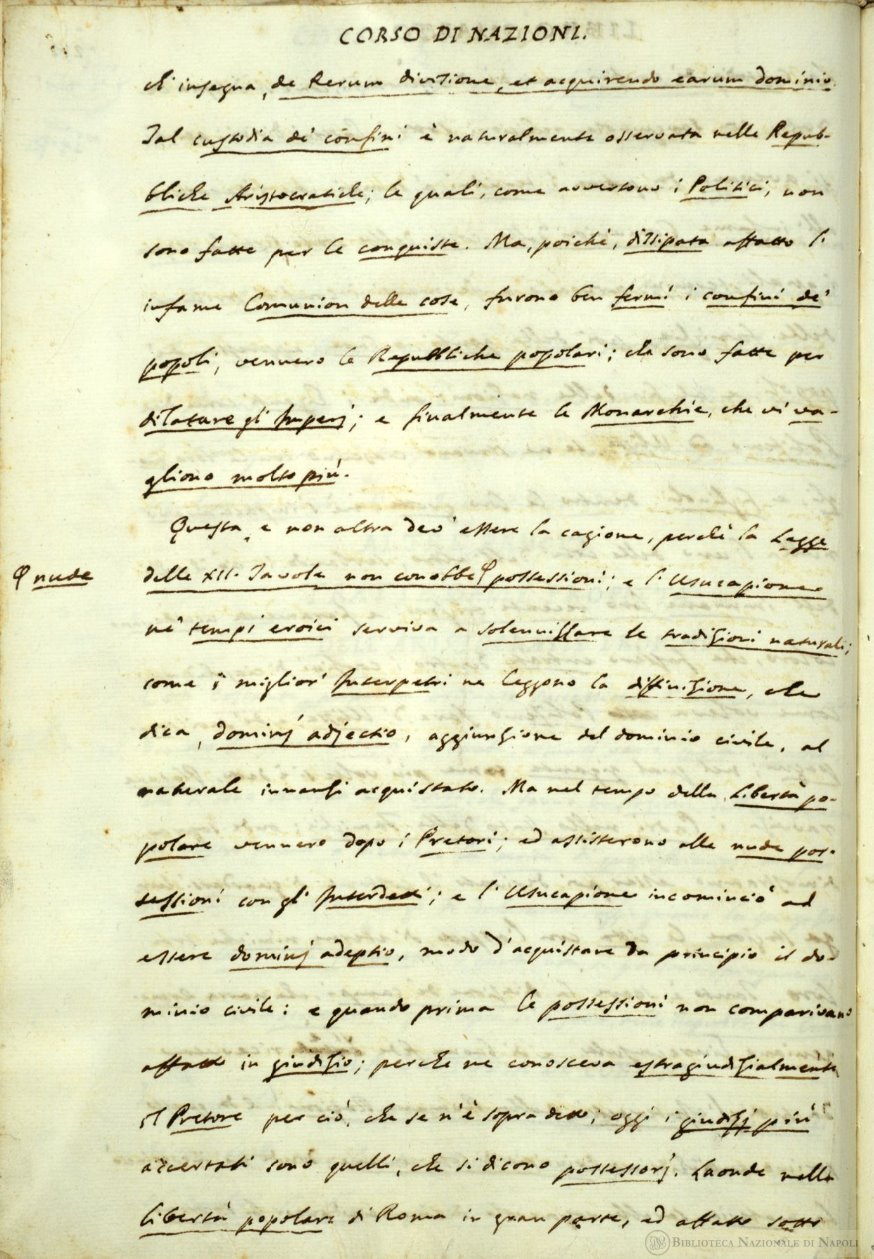 CORSO DI NAZIONI.
ch' insegna, de Rerum divisione, et acquirendo earum dominio.
Tal custodia de' confini è naturalmente osservata nelle Repub-
bliche Aristocratiche; le quali, come avvertono i Politici, non
sono fatte per le conquiste. Ma, poichè, dissipata affatto l'
infame Comunion delle cose, furono ben fermi i confini de'
popoli, vennero le Repubbliche popolari; che sono fatte per
dilatare gl' Imperj; e finalmente le Monarchie, che vi va-
gliono molto più.
Questa, e non altra dev' essere la cagione, perchè la Legge
φ nude
delle XII. Tavole non conobbe φ possessioni; e l' Usucapione
ne' tempi eroici serviva a solennizzare le tradizioni naturali;
come i miglior' Interpetri ne leggono la diffinizione, che
dica, dominj adjectio, aggiunzione del dominio civile, al
naturale innanzi acquistato. Ma nel tempo della Libertà po-
polare vennero dopo i Pretori; ed assisterono alle nude pos-
sessioni con gl' Interdetti; e l' Usucapione incominciò ad
essere dominj adeptio, modo d' acquistare da principio il do-
minio civile: e quando prima le possessioni non comparivano
affatto in giudizio; perchè ne conosceva estragiudizialmente
il Pretore per ciò, che se n' è sopra detto; oggi i giudizj più
accertati sono quelli, che si dicono possessorj. Laonde nella
libertà popolare di Roma in gran parte, ed affatto sotto
BIBLIOTECA NAZIONALE DI NAPOLI